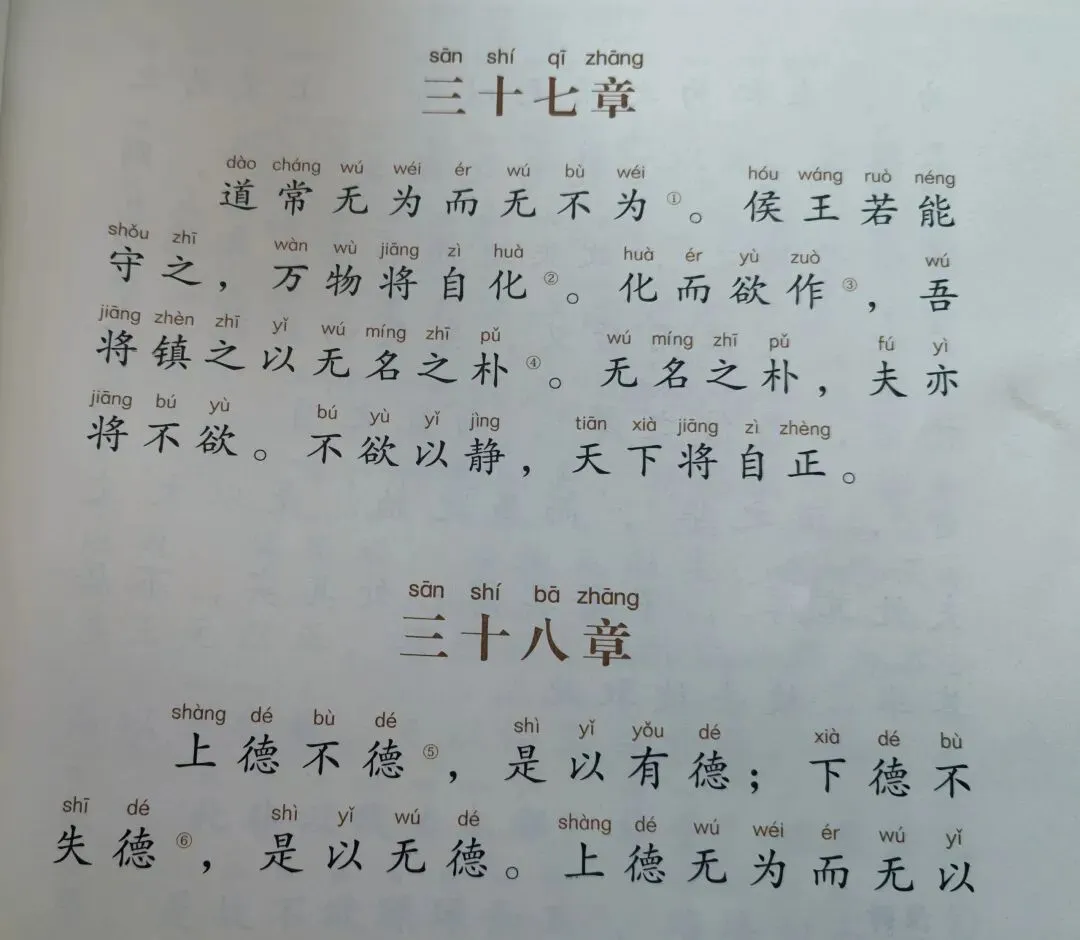 sān shí qī zhāng
三十七章
dào cháng wú wéi ér wú bù wéi hóu wáng ruò néng
道常无为而无不为①。侯王若能
shǒu zhī wàn wù jiāng zì huà huà ér yù zuò wú
守之，万物将自化②。化而欲作③，吾
jiāng zhèn zhī yǐ wú míng zhī pǔ wú míng zhī pǔ fú yì
将镇之以无名之朴④。无名之朴，夫亦
jiāng bú yù bú yù yǐ jìng tiān xià jiāng zì zhèng
将不欲。不欲以静，天下将自正。
sān shí bā zhāng
三十八章
shàng dé bù dé shì yǐ yǒu dé xià dé bù
上德不德⑤，是以有德；下德不
shī dé shì yǐ wú dé shàng dé wú wéi ér wú yǐ
失德⑥，是以无德。上德无为而无以